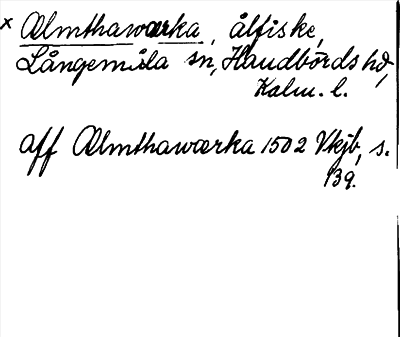 x Ælmthawærka, ålfiske,
Långemåla sn, Handbörds hd,
Kalm. l.
aff Ælmthawærka 1502 Vkjb, s.
139.